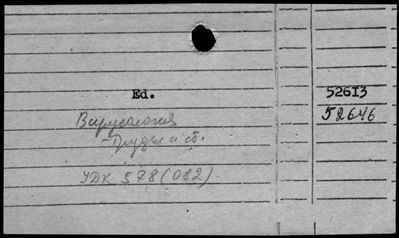 Ed. 52613
52646
Вирусология
- Труды и сб.
УДК 578(082)